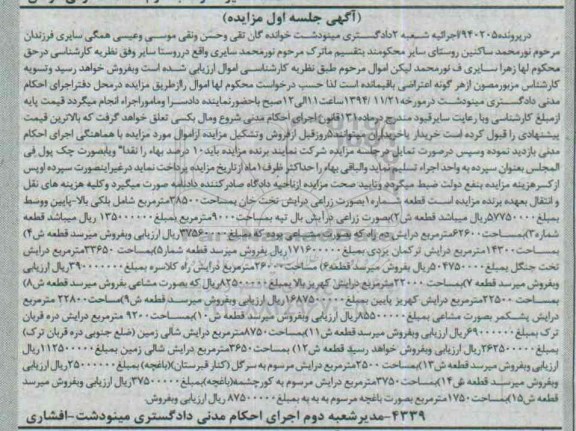 (آگهی جلسه اول مزایده)
درپرونده۹۴۰۲۰۵اجرائیه شعبه ۲دادگستری مینودشت خوانده گان تقی وحسن ونقی موسی وعیسی همگی سایری فرزندان
مرحوم نورمحمد ساکنین روستای سایر محکومند بتقسیم ماترک مرحوم نورمحمد سایری واقع درروستا سایر وفق نظریه کارشناسی درحق
محکوم لها زهرا سایری ف نورمحمد لیکن اموال مرحوم طبق نظریه کارشناسی اموال ارزیابی شده است وبفروش خواهد رسید وتسویه
کارشناس مزبورمصون ازهر گونه اعتراضی باقیمانده است لذا حسب درخواست محکوم لها اموال رازطریق مزایده درمحل دفتراجرای احکام
مدنی دادگستری مینودشت درمورخه۱۳۹۴/۱۱/۲۱ساعت۱۱الی۱۲صبح باحضورنماینده دادسرا ومامور اجراء انجام میگردد قیمت پایه
ازمبلغ کارشناسی وبا رعایت سایرقیود مندرج درماده۱۳۱قانون اجرای احکام مدنی شروع ومال بکسی تعلق خواهد گرفت که بالاترین قیمت
پیشنهادی را قبول کرده است خریدار یاخریداران میتوانند۵روزقبل ازفروش وتشکیل مزایده ازاموال مورد مزایده با هماهنگی اجرای احکام
مدنی بازدید نموده وسپس درصورت تمایل درجلسه مزایده شرکت نمایند برنده مزایده باید۱۰ درصد بهاء را نقدا" ویابصورت چک پول فی
المجلس بعنوان سپرده به واحد اجراء تسلیم نماید والباقی بهاء را حداکثر ظرف۱ماه ازتاریخ مزایده پرداخت نماید درغیراینصورت سپرده اوپس
ازکسرهزینه مزایده بنفع دولت ضبط میگردد وتایید صحت مزایده ازناحیه دادگاه صادرکننده دادنامه صورت میگیرد وکلیه هزینه های نقل
و انتقال بعهده برنده مزایده است قطعه شماره۱)بصورت زراعی درایش تخت خان بمساحت۳۸۵۰۰مترمربع شامل بلکی بالا-پایین ووسط
بمبلغ۵۷۷۵۰۰۰۰ریال میباشد قطعه ش۲)بصورت زراعی درایش بال تپه بمساحت۹۰۰۰مترمربع بمبلغ۱۳۵۰۰۰۰۰۰ ریال میباشد قطعه
شماره۳)بمساحت۶۲۶۰۰مترمربع درایش دم راه که بصورت مشاعی بوده که بمبلغ۳۷۵۶۰۰۰۰۰ریال ارزیابی وبفروش میرسد قطعه ش۴)
بمساحت۱۴۳۰۰مترمربع درایش ترکمان یزدی بمبلغ۱۷۱۶۰۰۰۰۰ریال بفروش میرسد قطعه شمار۵)بمساحت ۳۳۶۵۰مترمربع درایش
تخت جنگل بمبلغ۵۰۴۷۵۰۰۰۰ریال بفروش میرسد قطعه۶) مساحت۲۶۰۰۰مترمربع درایش راه کلاسره بمبلغ۳۹۰۰۰۰۰۰۰ریال ارزیابی
وبفروش میرسد قطعه ۷)بمساحت ۲۲۰۰۰مترمربع درایش کهریز بالا بمبلغ۸۲۵۰۰۰۰۰ریال که بصورت مشاعی بفروش میرسد قطعه ش۸)
بمساحت ۲۲۵۰۰مترمربع درایش کهریز پایین بمبلغ۱۶۸۷۵۰۰۰۰ریال ارزیابی وبفروش میرسد قطعه ش۹)مساحت۲۲۸۰۰ مترمربع
درایش پشکمر بصورت مشاعی بمبلغ۸۵۵۰۰۰۰۰ریال ارزیابی وبفروش میرسد قطعه ش۱۰)بمساحت۹۲۰۰ مترمربع درایش دره قربان
ترک بمبلغ۶۹۰۰۰۰۰۰ریال ارزیابی وبفروش میرسد قطعه ش۱۱)بمساحت۸۷۵۰مترمربع درایش شالی زمین (ضلع جنوبی دره قربان ترک)
بمبلغ۲۶۲۵۰۰۰۰۰ریال ارزیابی وبفروش خواهد رسید قطعه ش۱۲) بمساحت۳۶۵۰مترمربع درایش شالی زمین بمبلغ۱۱۲۵۰۰۰۰۰ریال
ارزیابی وبفروش میرسد قطعه ش۱۳)بمساحت۲۵۰۰مترمربع درایش مرسوم به سرگل (کنار قبرستان)(باغچه)بمبلغ۲۵۰۰۰۰۰۰ریال ارزیابی
وبفروش میرسد قطعه ش۱۴)بمساحت ۳۷۵۰مترمربع درایش مرسوم به کورچشمه(باغچه)بمبلغ۳۷۵۰۰۰۰۰ریال ارزیابی وبفروش میرسد
قطعه ش۱۵)بمساحت۱۷۵۰مترمربع بصورت باغچه مرسوم به یه یه بمبلغ۸۷۵۰۰۰۰۰ریال ارزیابی وبفروش
۴۳۳۹-مدیرشعبه دوم اجرای احکام مدنی دادگستری مینودشت-افشاری